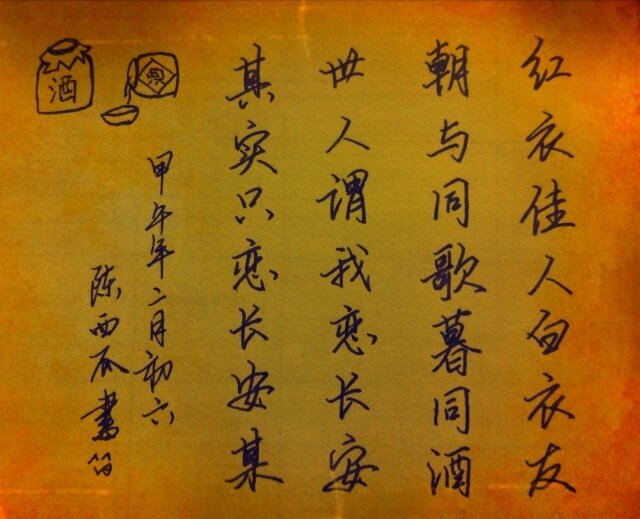 红衣佳人白衣友
朝与同歌暮同酒
世人谓我恋长安
其实只恋长安某
甲午年二月初六
陈西瓜書
酒